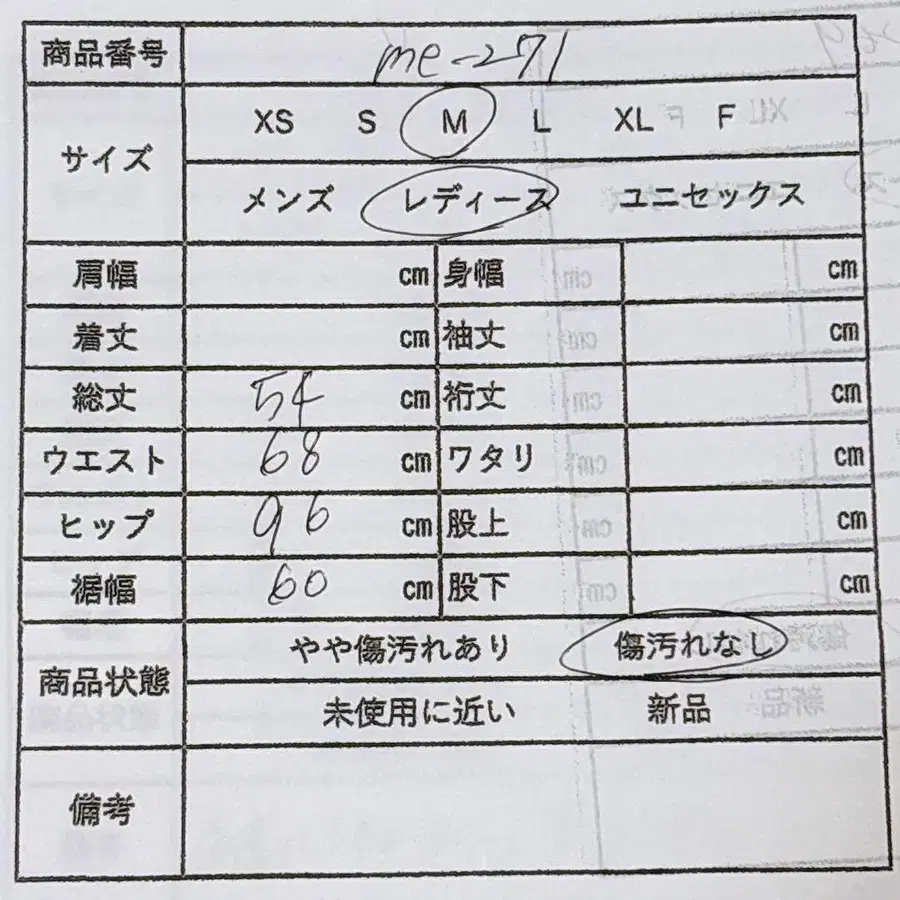 商品番号 me-271
サイズ XS S M L XL F
メンズ レディース ユニセックス
肩幅 cm 身幅 cm
着丈 cm 袖丈 cm
総丈 54 cm 裄丈 cm
ウエスト 68 cm ワタリ cm
ヒップ 96 cm 股上 cm
裾幅 60 cm 股下 cm
商品状態 やや傷汚れあり 傷汚れなし
未使用に近い 新品
備考